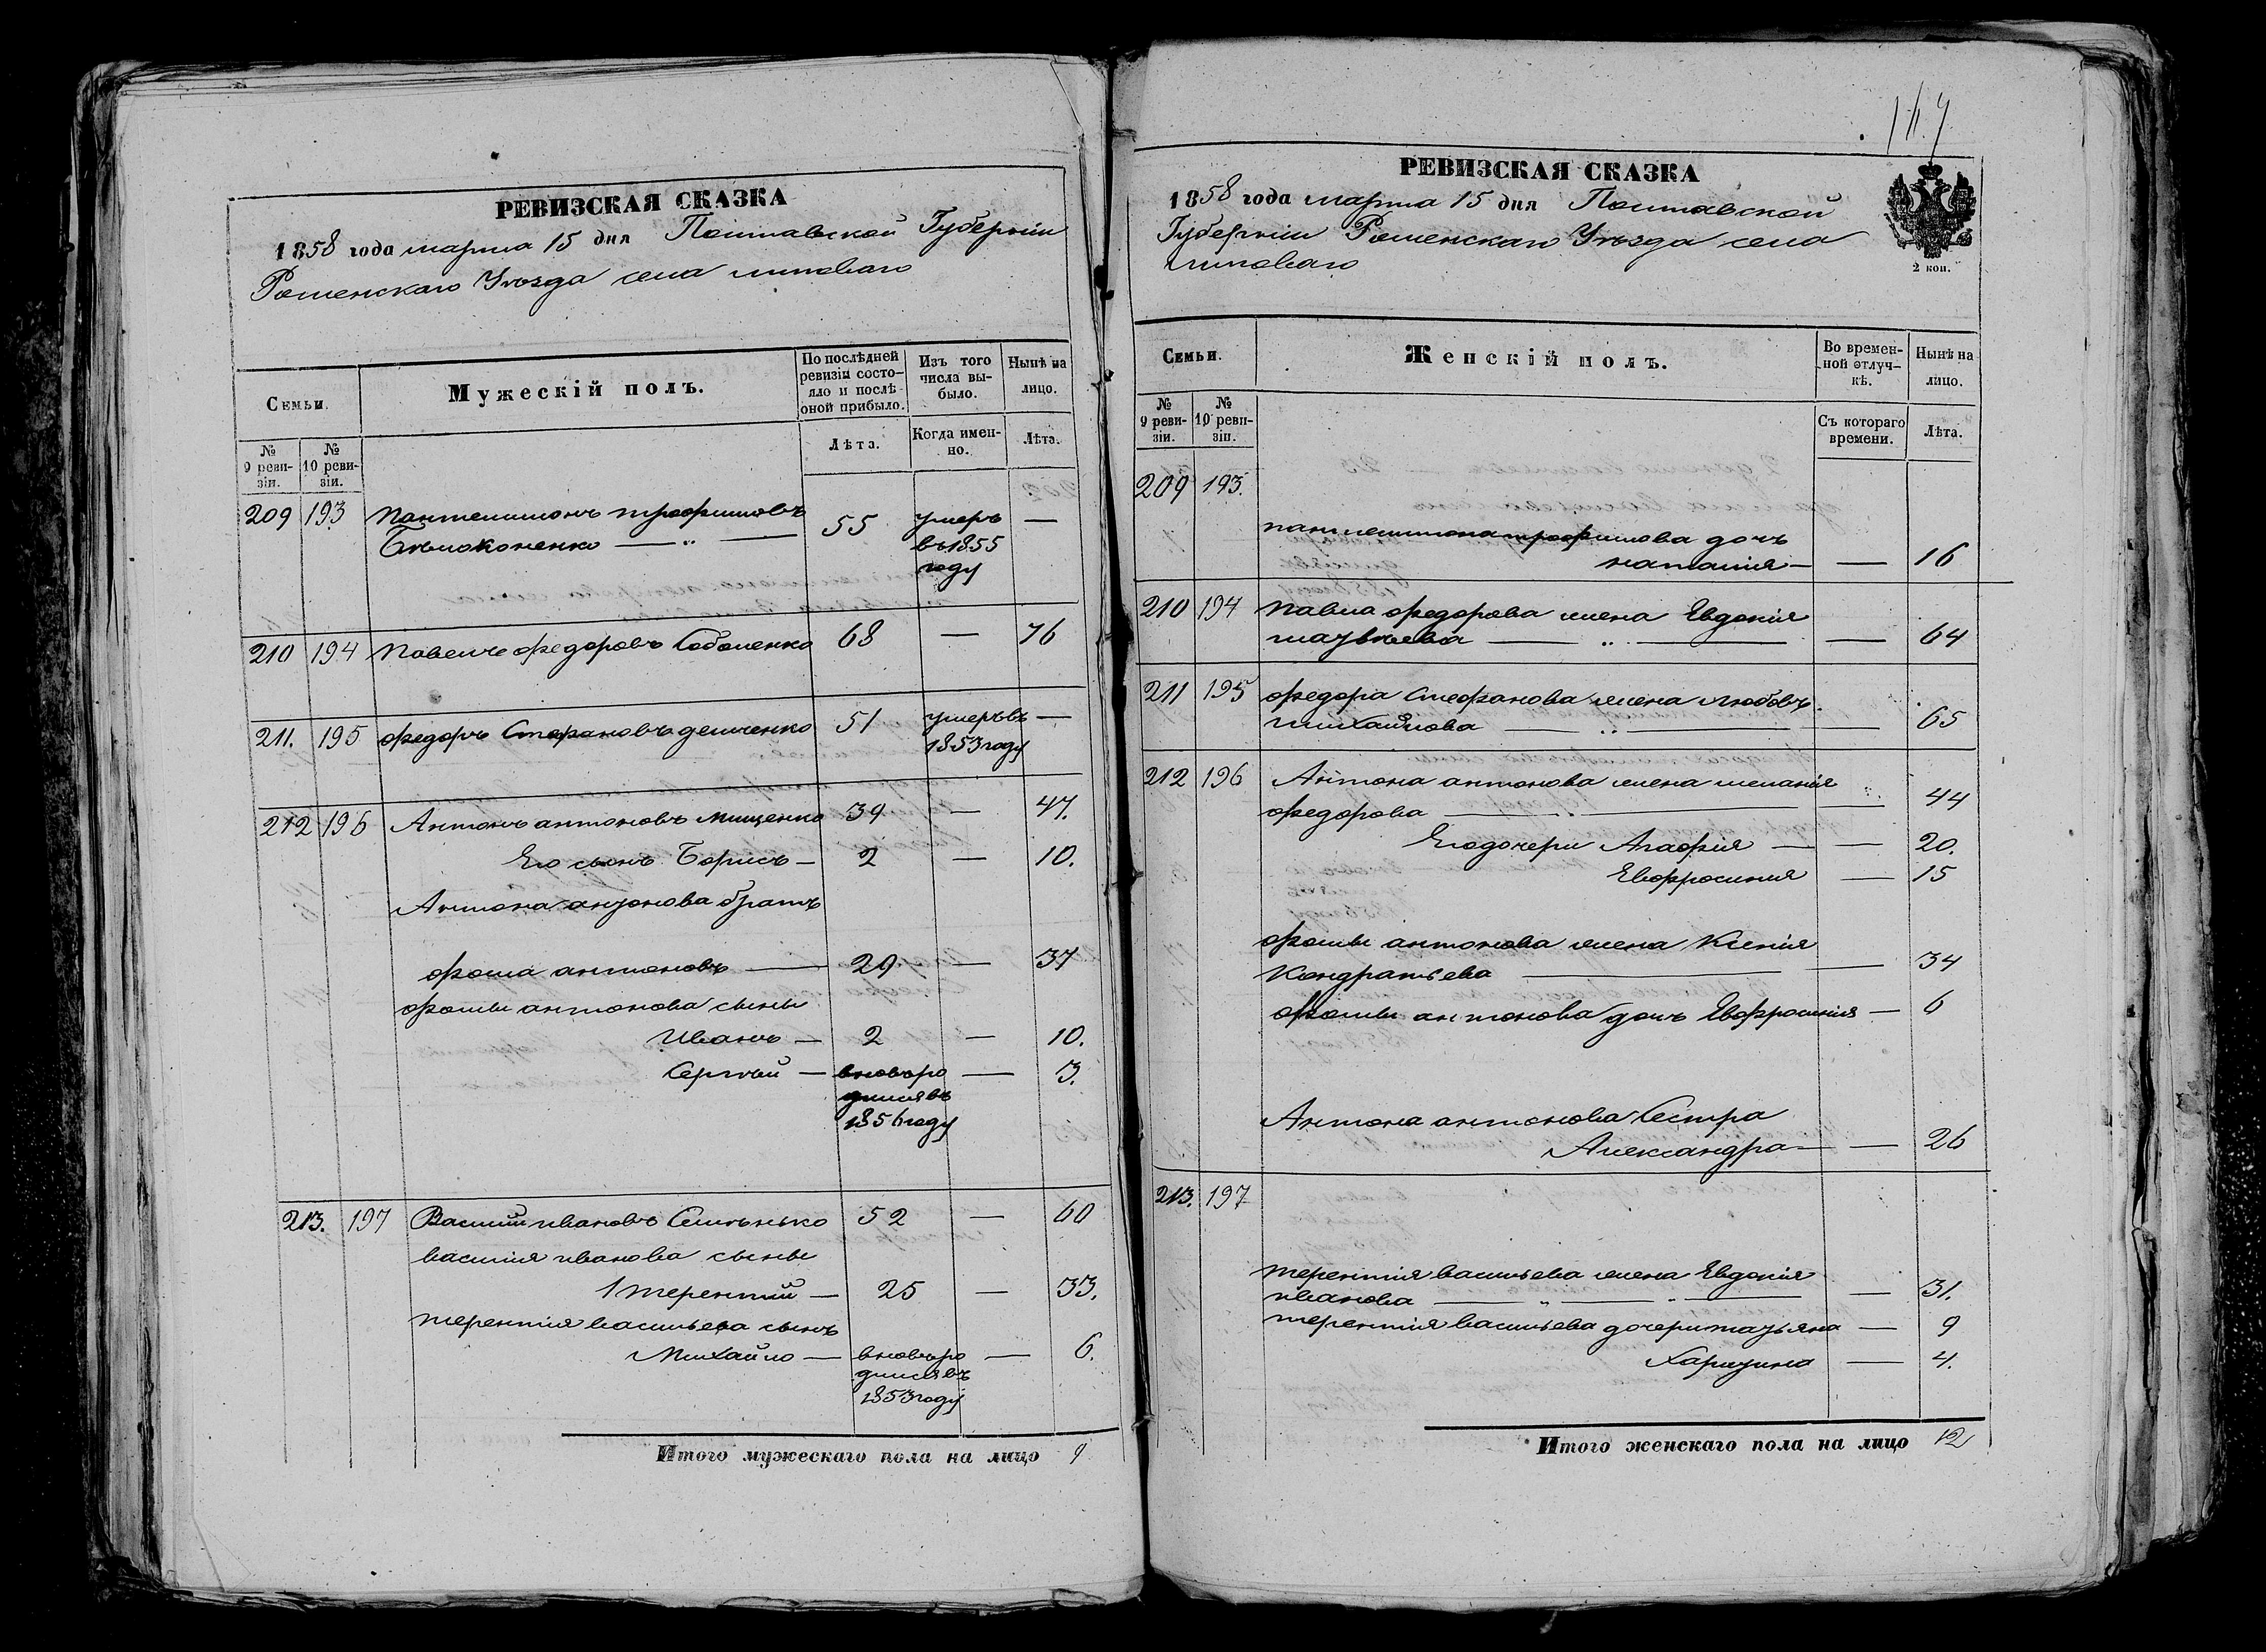 РЕВИЗСКАЯ СКАЗКА
1858 года марта 15 дня Полтавской Губернiи
Роменскаго Уѣзда села липоваго
Семьи.
Мужескiй полъ.
По послѣдней ревизiи состояло и послѣ оной прибыло.
Изъ того числа выбыло.
Нынѣ на лицо.
№ 9 ревизiи.
№ 10 ревизiи.
Лѣта.
Когда именно.
Лѣта.
209 193 Пантелимонъ трофимовъ
Бѣлоконенко — „ — 55 умеръ въ 1855 году —
210 194 Павелъ федоровъ Соболенко 68 — 76
211. 195 федоръ Стефановъ демченко 51 умеръ въ 1853 году —
212 196 Антонъ антоновъ Мищенко 39 — 47.
Его сынъ Борисъ — 2 — 10.
Антона антонова братъ
фома антоновъ — 29. — 37
фомы антонова сыны
Иванъ — 2 — 10.
Сергѣй — вновьродился въ 1856 году — 3.
213. 197 Василий ивановъ Семѣнько 52 — 60
василия иванова сыны
1 терентий — 25 — 33.
терентия васильева сынъ
Михайло — вновьродился въ 1853 году — 6.
Итого мужескаго пола на лицо 9
147
РЕВИЗСКАЯ СКАЗКА
1858 года марта 15 дня Полтавской
Губернiи Роменскаго Уѣзда села
липоваго
2 коп.
Семьи.
Женскiй полъ.
Во временной отлучкѣ.
Нынѣ на лицо.
№ 9 ревизiи.
№ 10 ревизiи.
Съ котораго времени.
Лѣта.
209 193.
пантелимона трофимова дочь
наталия — — 16
210 194 Павла федорова жена Евдокiя
матвѣева — „ — — 64
211 195 федора Стефанова жена любовь
михайлова — „ — — 65
212 196 Антона антонова жена мелания
федорова — — 44
Его дочери Агафiя — — 20.
Евфросиния — 15
фомы антонова жена Ксенiя
Кондратьева — — 34
фомы антонова дочь Евфросинiя — 6
Антона антонова Сестра
Александра — — 26
213. 197
терентия васильева жена Евдокiя
иванова — „ — „ — — 31.
терентия васильева дочери татьяна — 9
Харитина — 4.
Итого женскаго пола на лицо 12